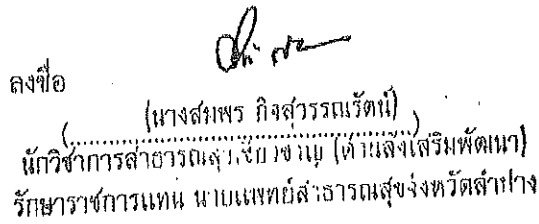 ลงชื่อ
(นางสมพร กิจสุวรรณรัตน์)
(............................................)
นักวิชาการสาธารณสุขเชี่ยวชาญ (ด้านส่งเสริมพัฒนา)
รักษาราชการแทน นายแพทย์สาธารณสุขจังหวัดลำปาง